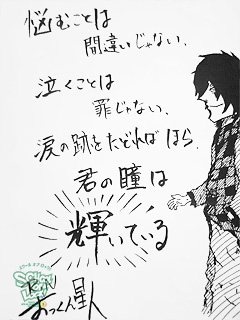 悩むことは
間違いじゃない、
泣くことは
罪じゃない、
涙の跡をたどればほら、
君の瞳は
輝いている
R.N
おっくん星人